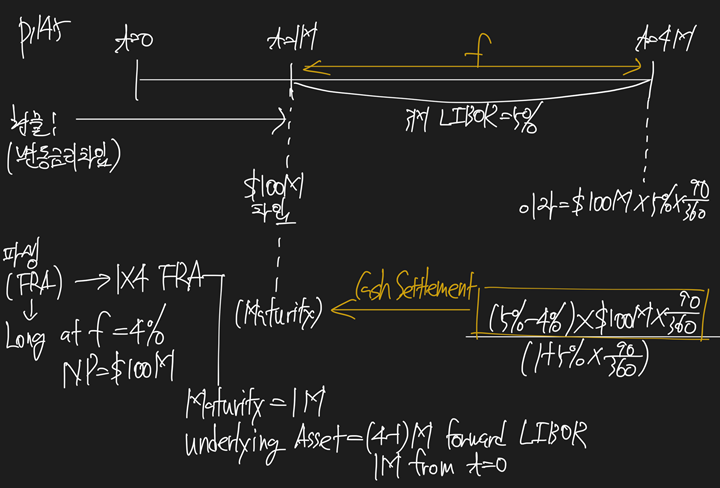 p.145
t=0
t=1M
f
t=4M
현물:
(변동금리차입)
3M LIBOR=5%
$100M
차입
이자=$100M×5%×90/360
파생
(FRA) → 1×4 FRA
↓
Long at f=4%
NP=$100M
(Maturity)
Cash Settlement
(5%-4%)×$100M×90/360
(1+5%×90/360)
Maturity=1M
underlying Asset=(4-1)M forward LIBOR
1M from t=0